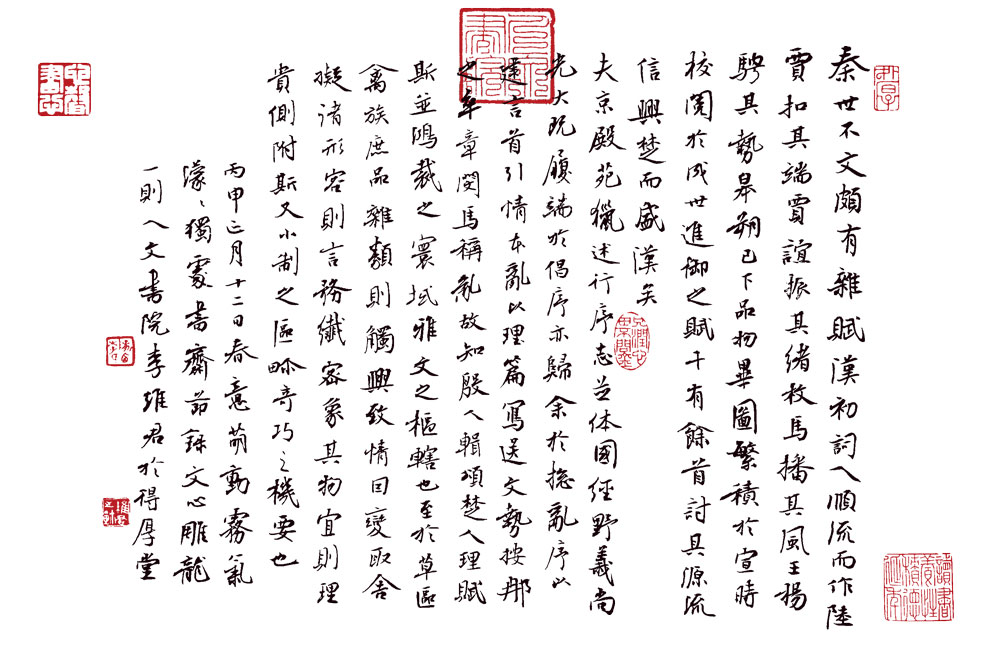 秦世不文頗有雜賦漢初詞人順流而作陸
賈扣其端賈誼振其緒枚馬播其風王揚
騁其勢皋朔已下品物畢圖繁積於宣時
校閱於成世進御之賦千有餘首討其源流
信興楚而盛漢矣
夫京殿苑獵述行序志並體國經野義尚
光大既履端於倡序亦歸余於揔亂序以
建言首引情本亂以理篇寫送文勢按那
之卒章閔馬稱亂故知殷人輯頌楚人理賦
斯並鴻裁之寰域雅文之樞轄也至於草區
禽族庶品雜類則觸興致情因變取舍
擬諸形容則言務纖密象其物宜則理
貴側附斯又小制之區畛奇巧之機要也
丙申正月十二日春意萌動霧氣
濛々獨處書齋節錄文心雕龍
一則人文書院李維君於得厚堂
讀書養性積德延年